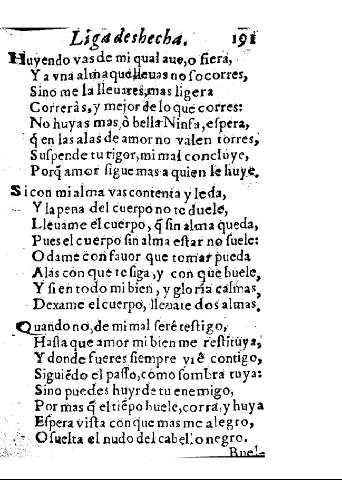 Liga deshecha. 191
Huyendo vas de mi qual aue, o fiera,
Y a vna alma que lleuas no socorres,
Sino me la lleuares, mas ligera
Correràs, y mejor de lo que corres:
No huyas mas, ò bella Ninfa, espera,
q̃ en las alas de amor no valen torres,
Suspende tu rigor, mi mal concluye,
Porq̃ amor sigue mas a quien le huye.
Si con mi alma vas contenta y leda,
Y la pena del cuerpo no te duele,
Lleuame el cuerpo, q̃ sin alma queda,
Pues el cuerpo sin alma estar no suele:
O dame con fauor que tomar pueda
Alas con que te siga, y con que buele,
Y si en todo mi bien, y gloria calmas,
Dexame el cuerpo, lleuate dos almas.
Quando no, de mi mal serè testigo,
Hasta que amor mi bien me restituya,
Y donde fueres siempre yrè contigo,
Siguiẽdo el passo, como sombra tuya:
Sino puedes huyr de tu enemigo,
Por mas q̃ el tiẽpo buele, corra, y huya
Espera vista con que mas me alegro,
O suelta el nudo del cabello negro.
Buel-